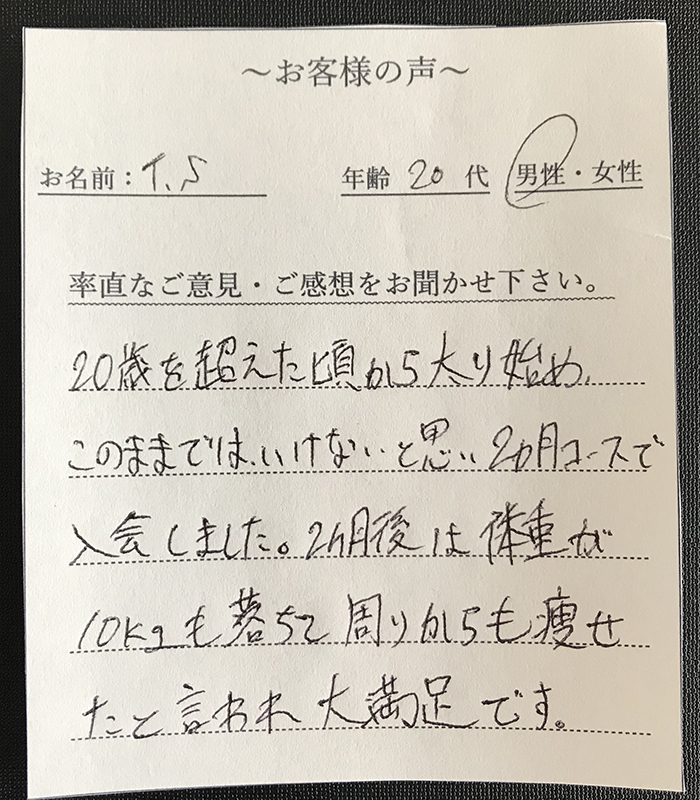 ～お客様の声～
お名前：T.S　年齢 20 代　男性・女性
率直なご意見・ご感想をお聞かせ下さい。
20歳を超えた頃から太り始め、
このままではいけないと思い2カ月コースで
入会しました。2カ月後は体重が
10kgも落ちて周りからも痩せ
たと言われ大満足です。